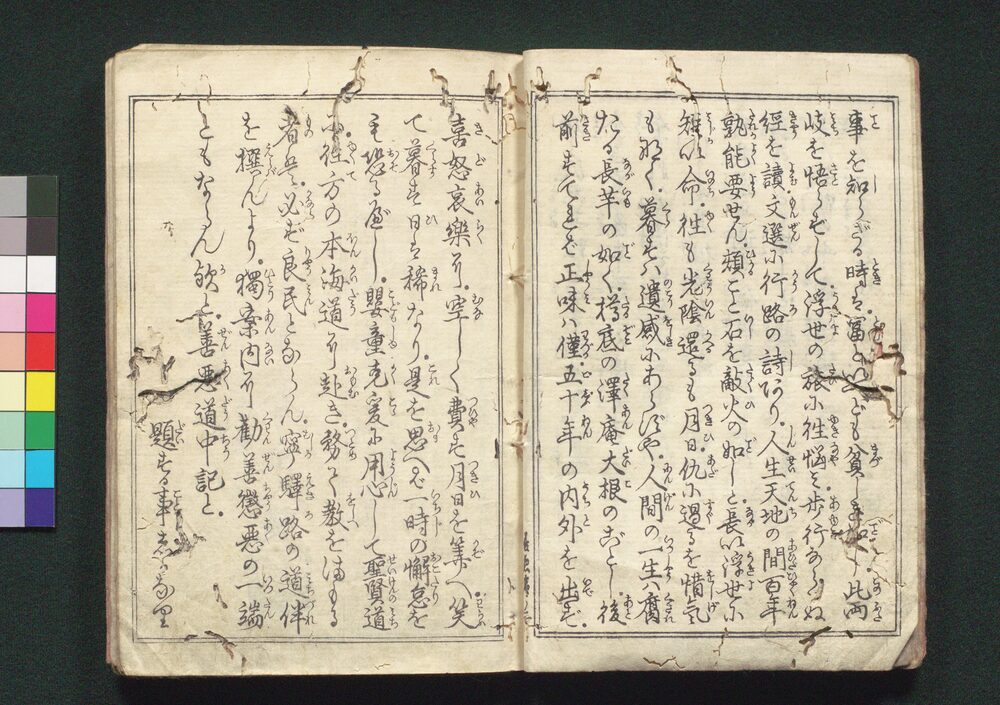 事を知らざる時は富といへども貧しきがごとし此両
岐を悟らずして浮世の旅に徃悩む歩行あらじぬ
經を讀文選に行路の詩あり人生天地の間百年
孰能要せん頽こと石を敲火の如しと長い浮世に
短い命徃も光陰還るも月日仇に過るを惜気
も那く暮すハ遺感にあらずや人間の一生ハ腐
たる長芋の如く樽底の澤庵大根のごとし後
前すてれば正味ハ僅五十年の内外を出ず
喜怒哀樂に空しく費す月日を算へ笑
て暮す日は稀なり是を思へば一時の懈怠を
も恐る可し嬰童克爰に用心して聖賢道
に徃方の本海道に赴き務て教を守る
者は必ず良民とならん寧驛路の道伴
を撰んより獨案内に勸善懲惡の一端
ともならん歟と善惡道中記と
題する事志かな里